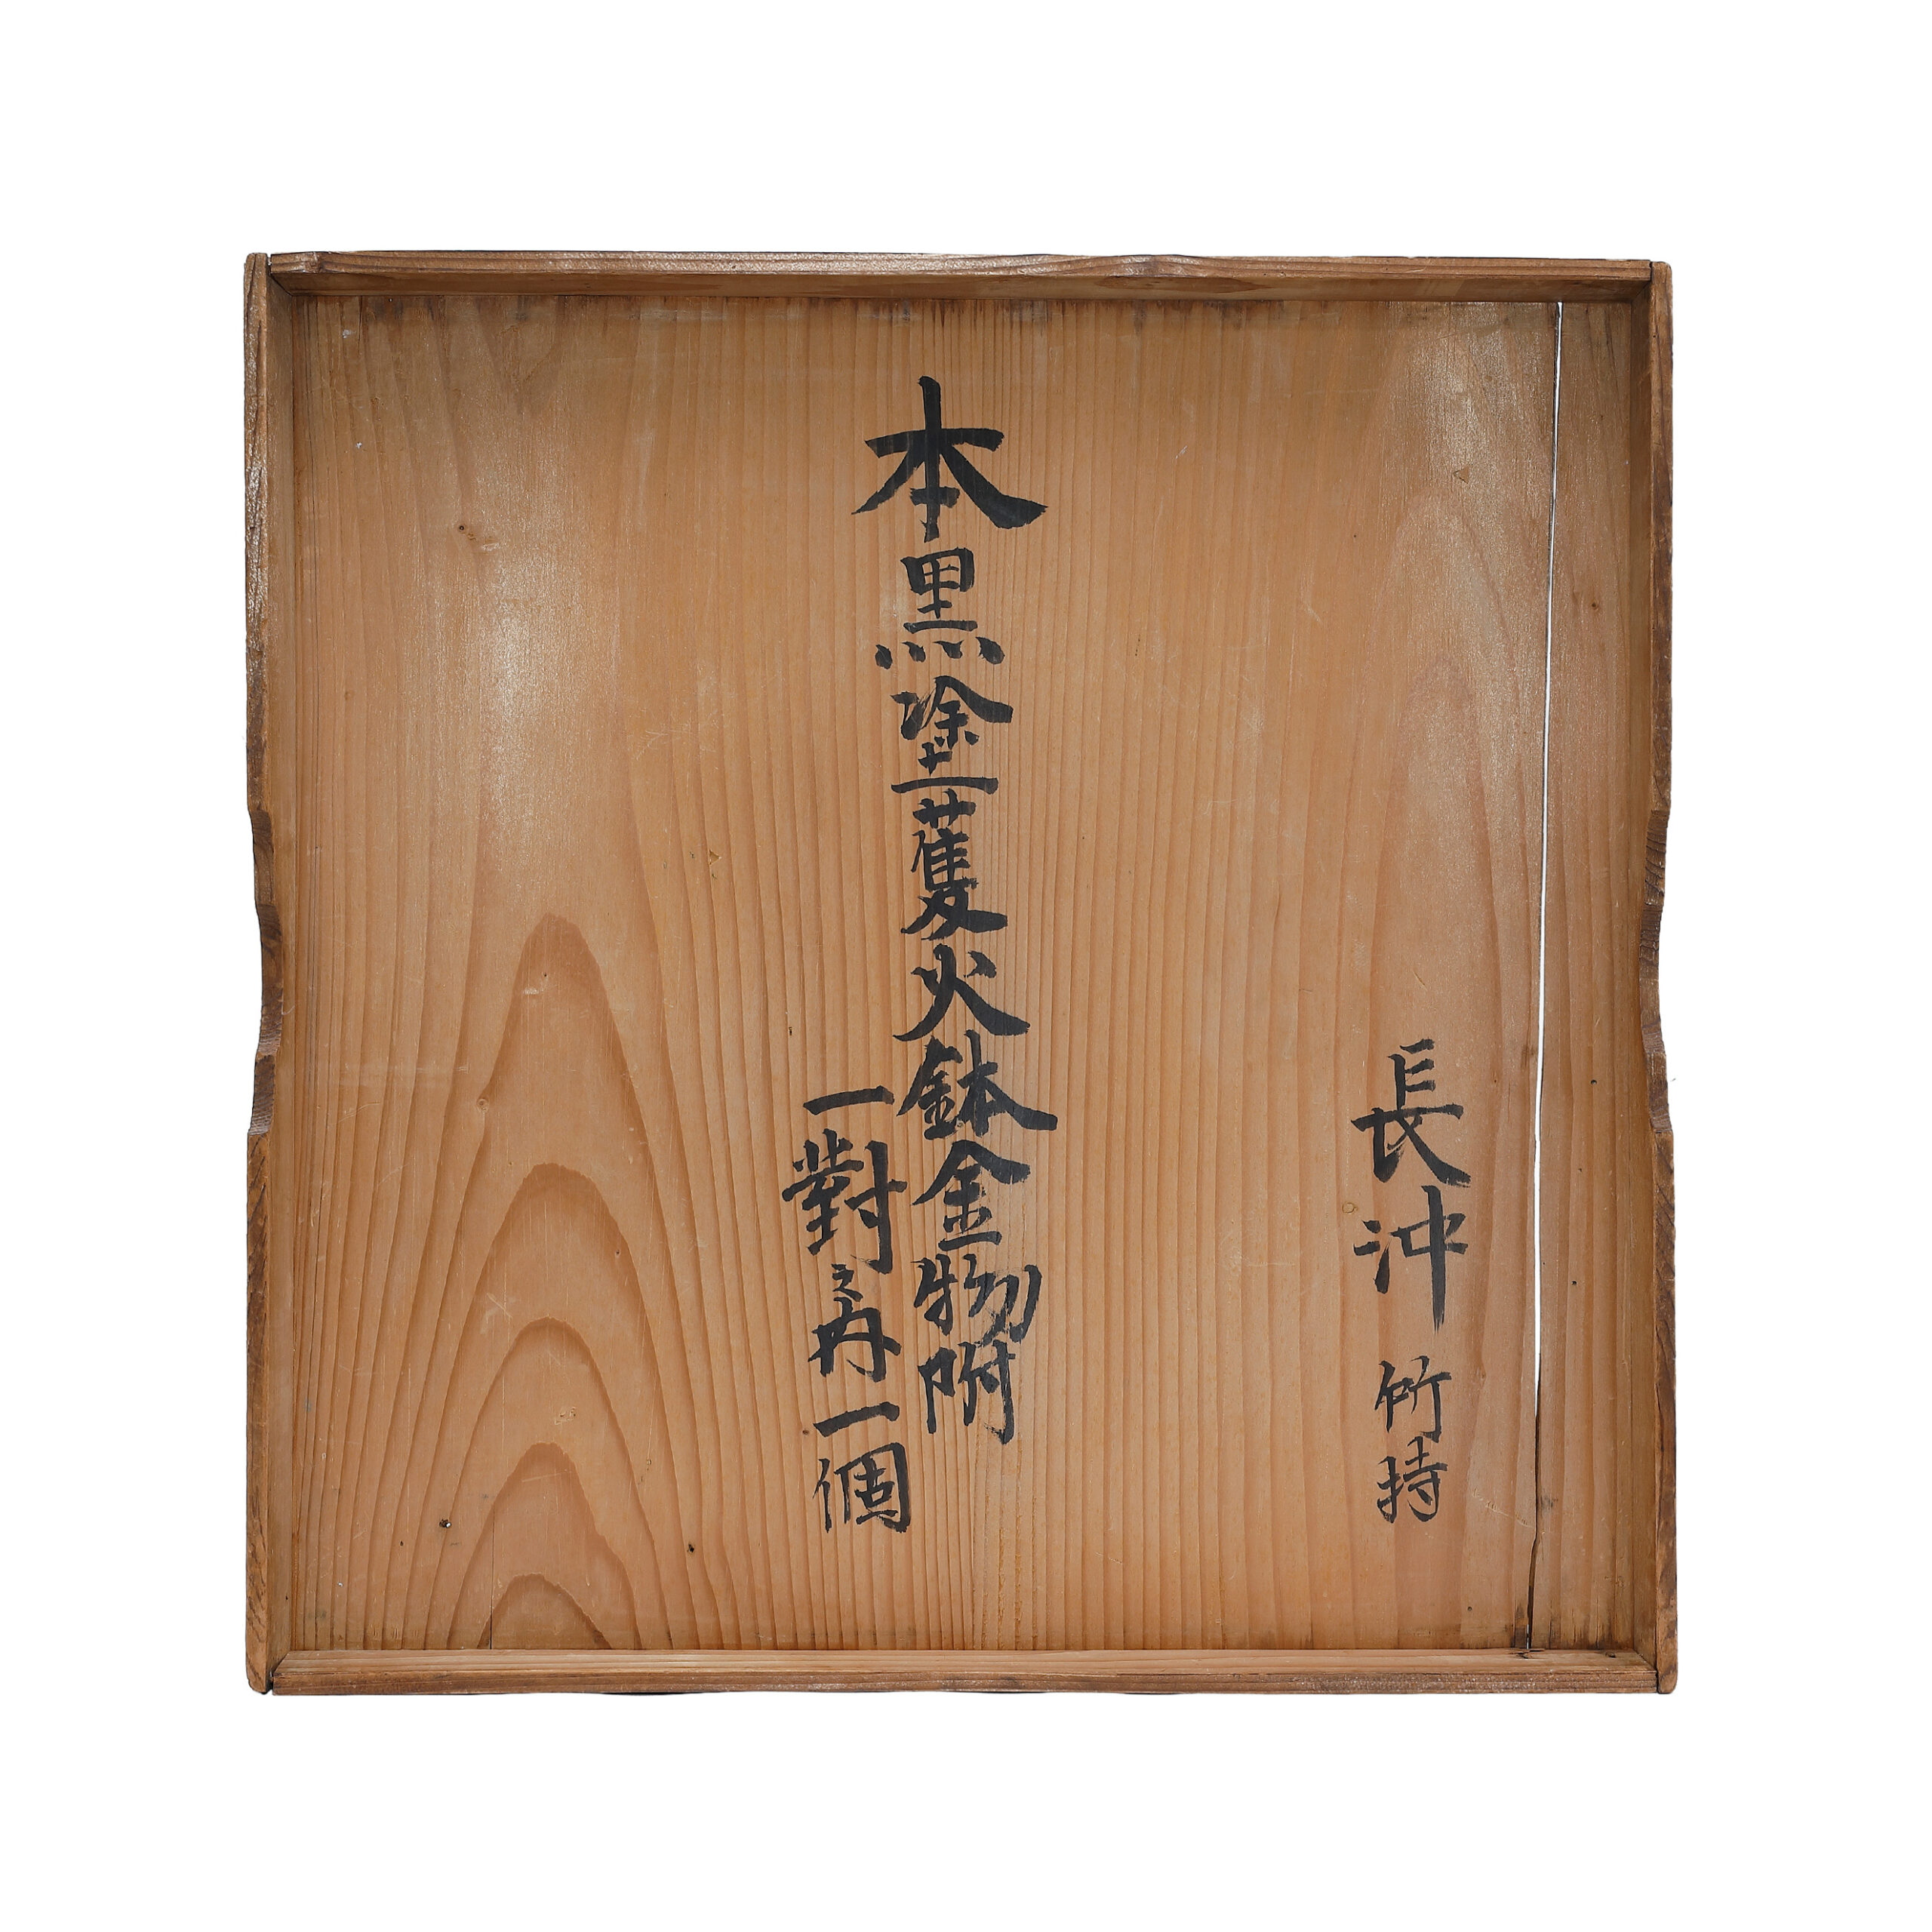 長沖 竹持
本黒塗蔓火鉢金物附
一對之内一個